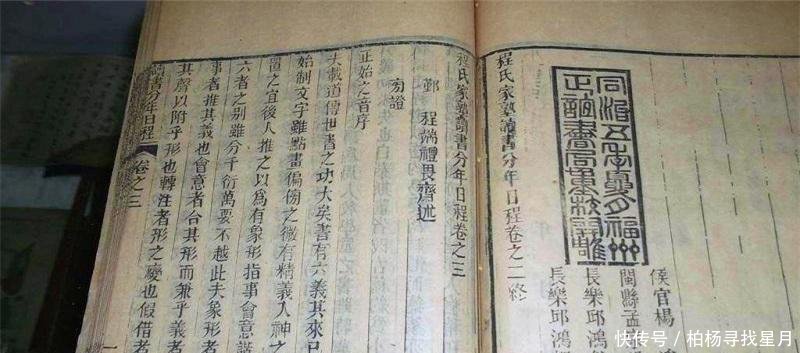 侯官楊
閩縣孟
長樂邱鴻
長樂邱鴻
同治五年夏月福州
正誼書局重校開雕
程氏家塾讀書分年日程卷之二終
程氏家塾讀書分年日程卷之三
鄞 程端禮畏齋述
旁證
正始之音序
夫載道傳世書之功大矣書有六義其來已
始制文字雖點畫偏傍之微有精義入神之
置之宜後人推之以爲有象形指事會意諧
六者之别雖分千衍萬要不越此夫象形
事者推其義也會意者合其形而兼乎義者
其聲以附乎形也轉注者形之變也假借者
讀書分年日程 卷之三
一
快传号／柏杨寻找星月